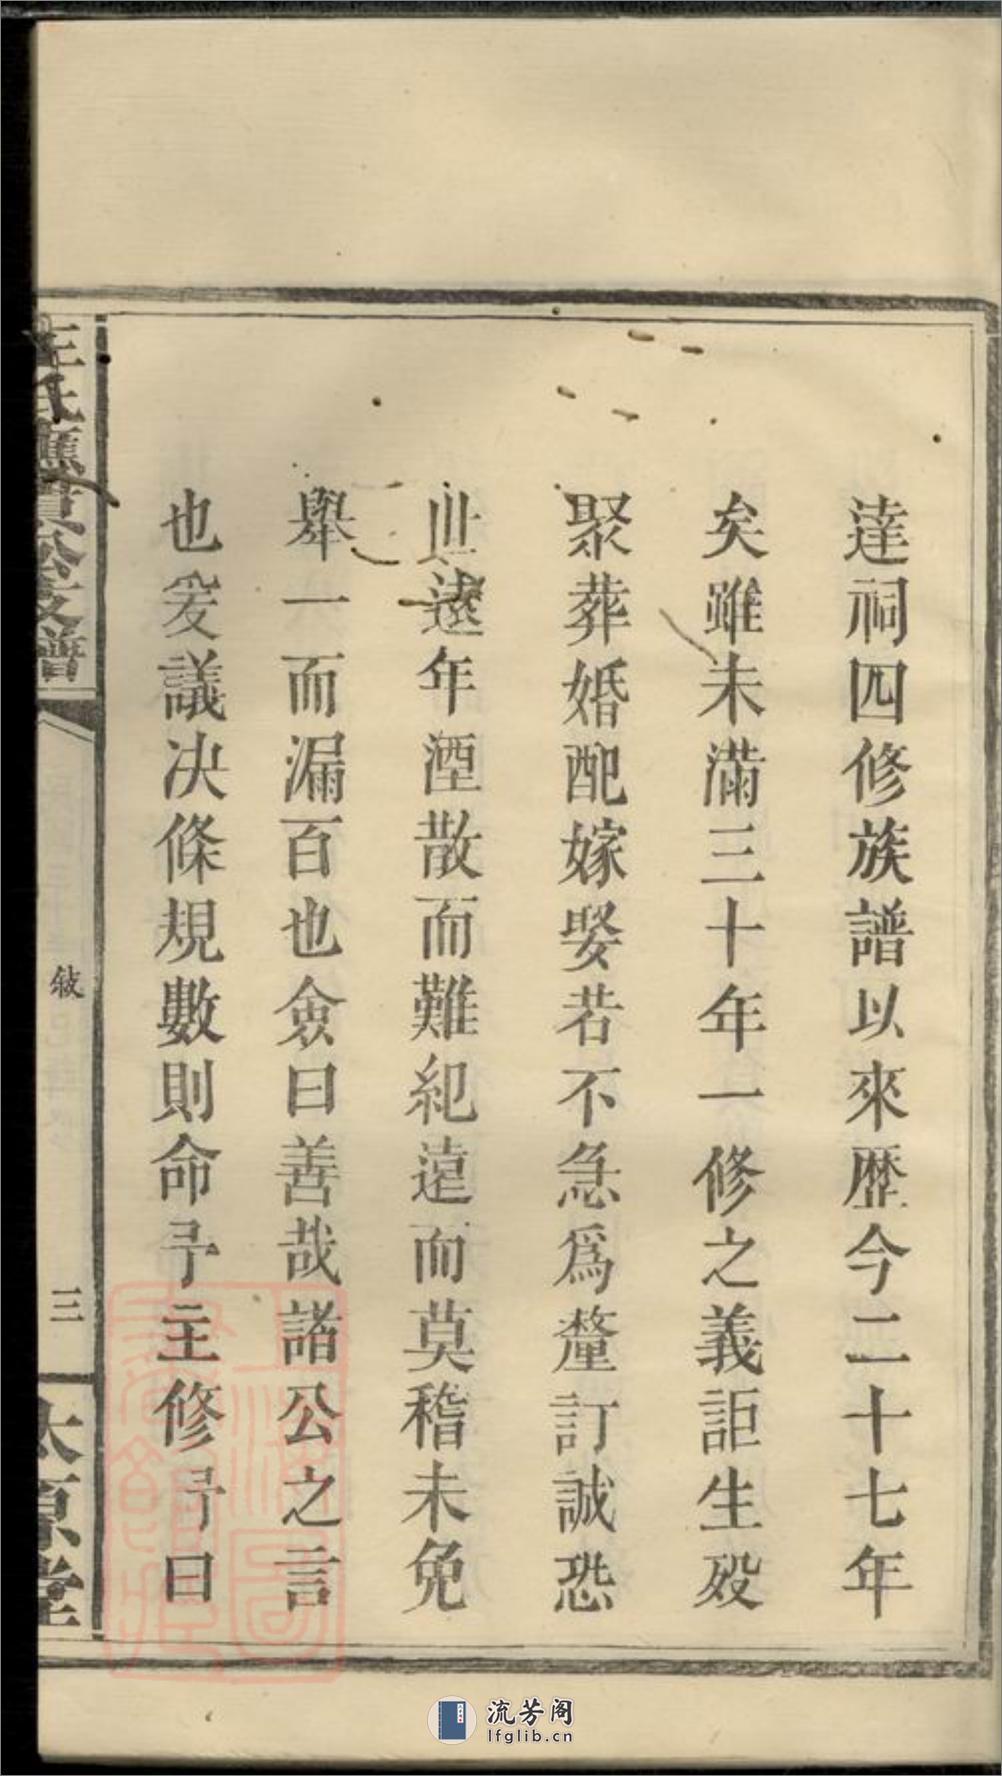 達祠四修族譜以來歷今二十七年
矣雖未滿三十年一修之義詎生歿
聚葬婚配嫁娶若不急爲釐訂誠恐
世遠年湮散而難紀遠而莫稽未免
舉一而漏百也僉曰善哉諸公之言
也爰議决條規數則命予主修予曰
王氏應貫公支譜
敘
三
太原堂
流芳阁
lfglib.cn